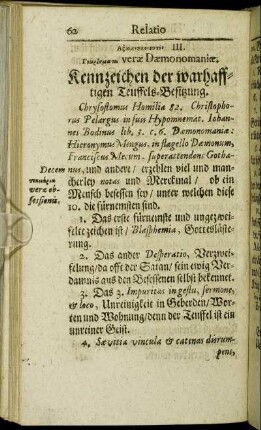 62 Relatio
III.
veræ Dæmonomaniæ.
Kennzeichen der warhaff-
tigen Teuffels-Besitzung.
Chrysostomus Homilia 82. Christopho-
rus Pelargus in suis Hypomnemat. Iohan-
nes Bodinus lib. 3. c. 6. Dæmonomania:
Hieronymus Mengus. in flagello Dæmonum,
Franciscus Mocum. superattendens Gotha-
nus, und andere/ erzehlen viel und man-
cherley notas und Merckmal/ ob ein
Mensch besessen sey/ unter welchen diese
10. die fürnemsten sind.
veræ ob-
sessionis,
1. Das erste fürnemste und ungezwei-
feltezeichen ist/ Blasphemia, Gottesläste-
rung.
2. Das ander Desperatio, Verzwei-
felung/da offt der Satan/ sein ewig Ver-
damnis aus den Besessenen selbst bekennet.
3. Das 3. Impuritas in gestu, sermone,
& loco, Unreinigkeit in Geberden/ Wor-
ten und Wohnung/denn der Teuffel ist ein
unreiner Geist.
4. Sævitia vincula & catenas disrum-
pens,